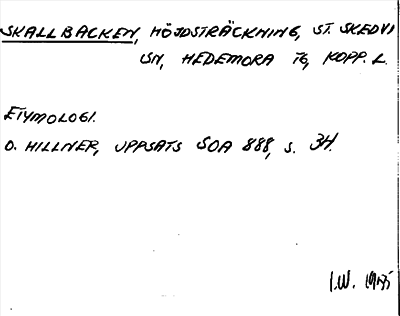 SKALLBACKEN, HÖJDSTRÄCKNING, ST. SKEDVI
SN, HEDEMORA TG, KOPP. L.
ETYMOLOGI.
O. HILLNER, UPPSATS SOA 888, S. 34.
I.W.